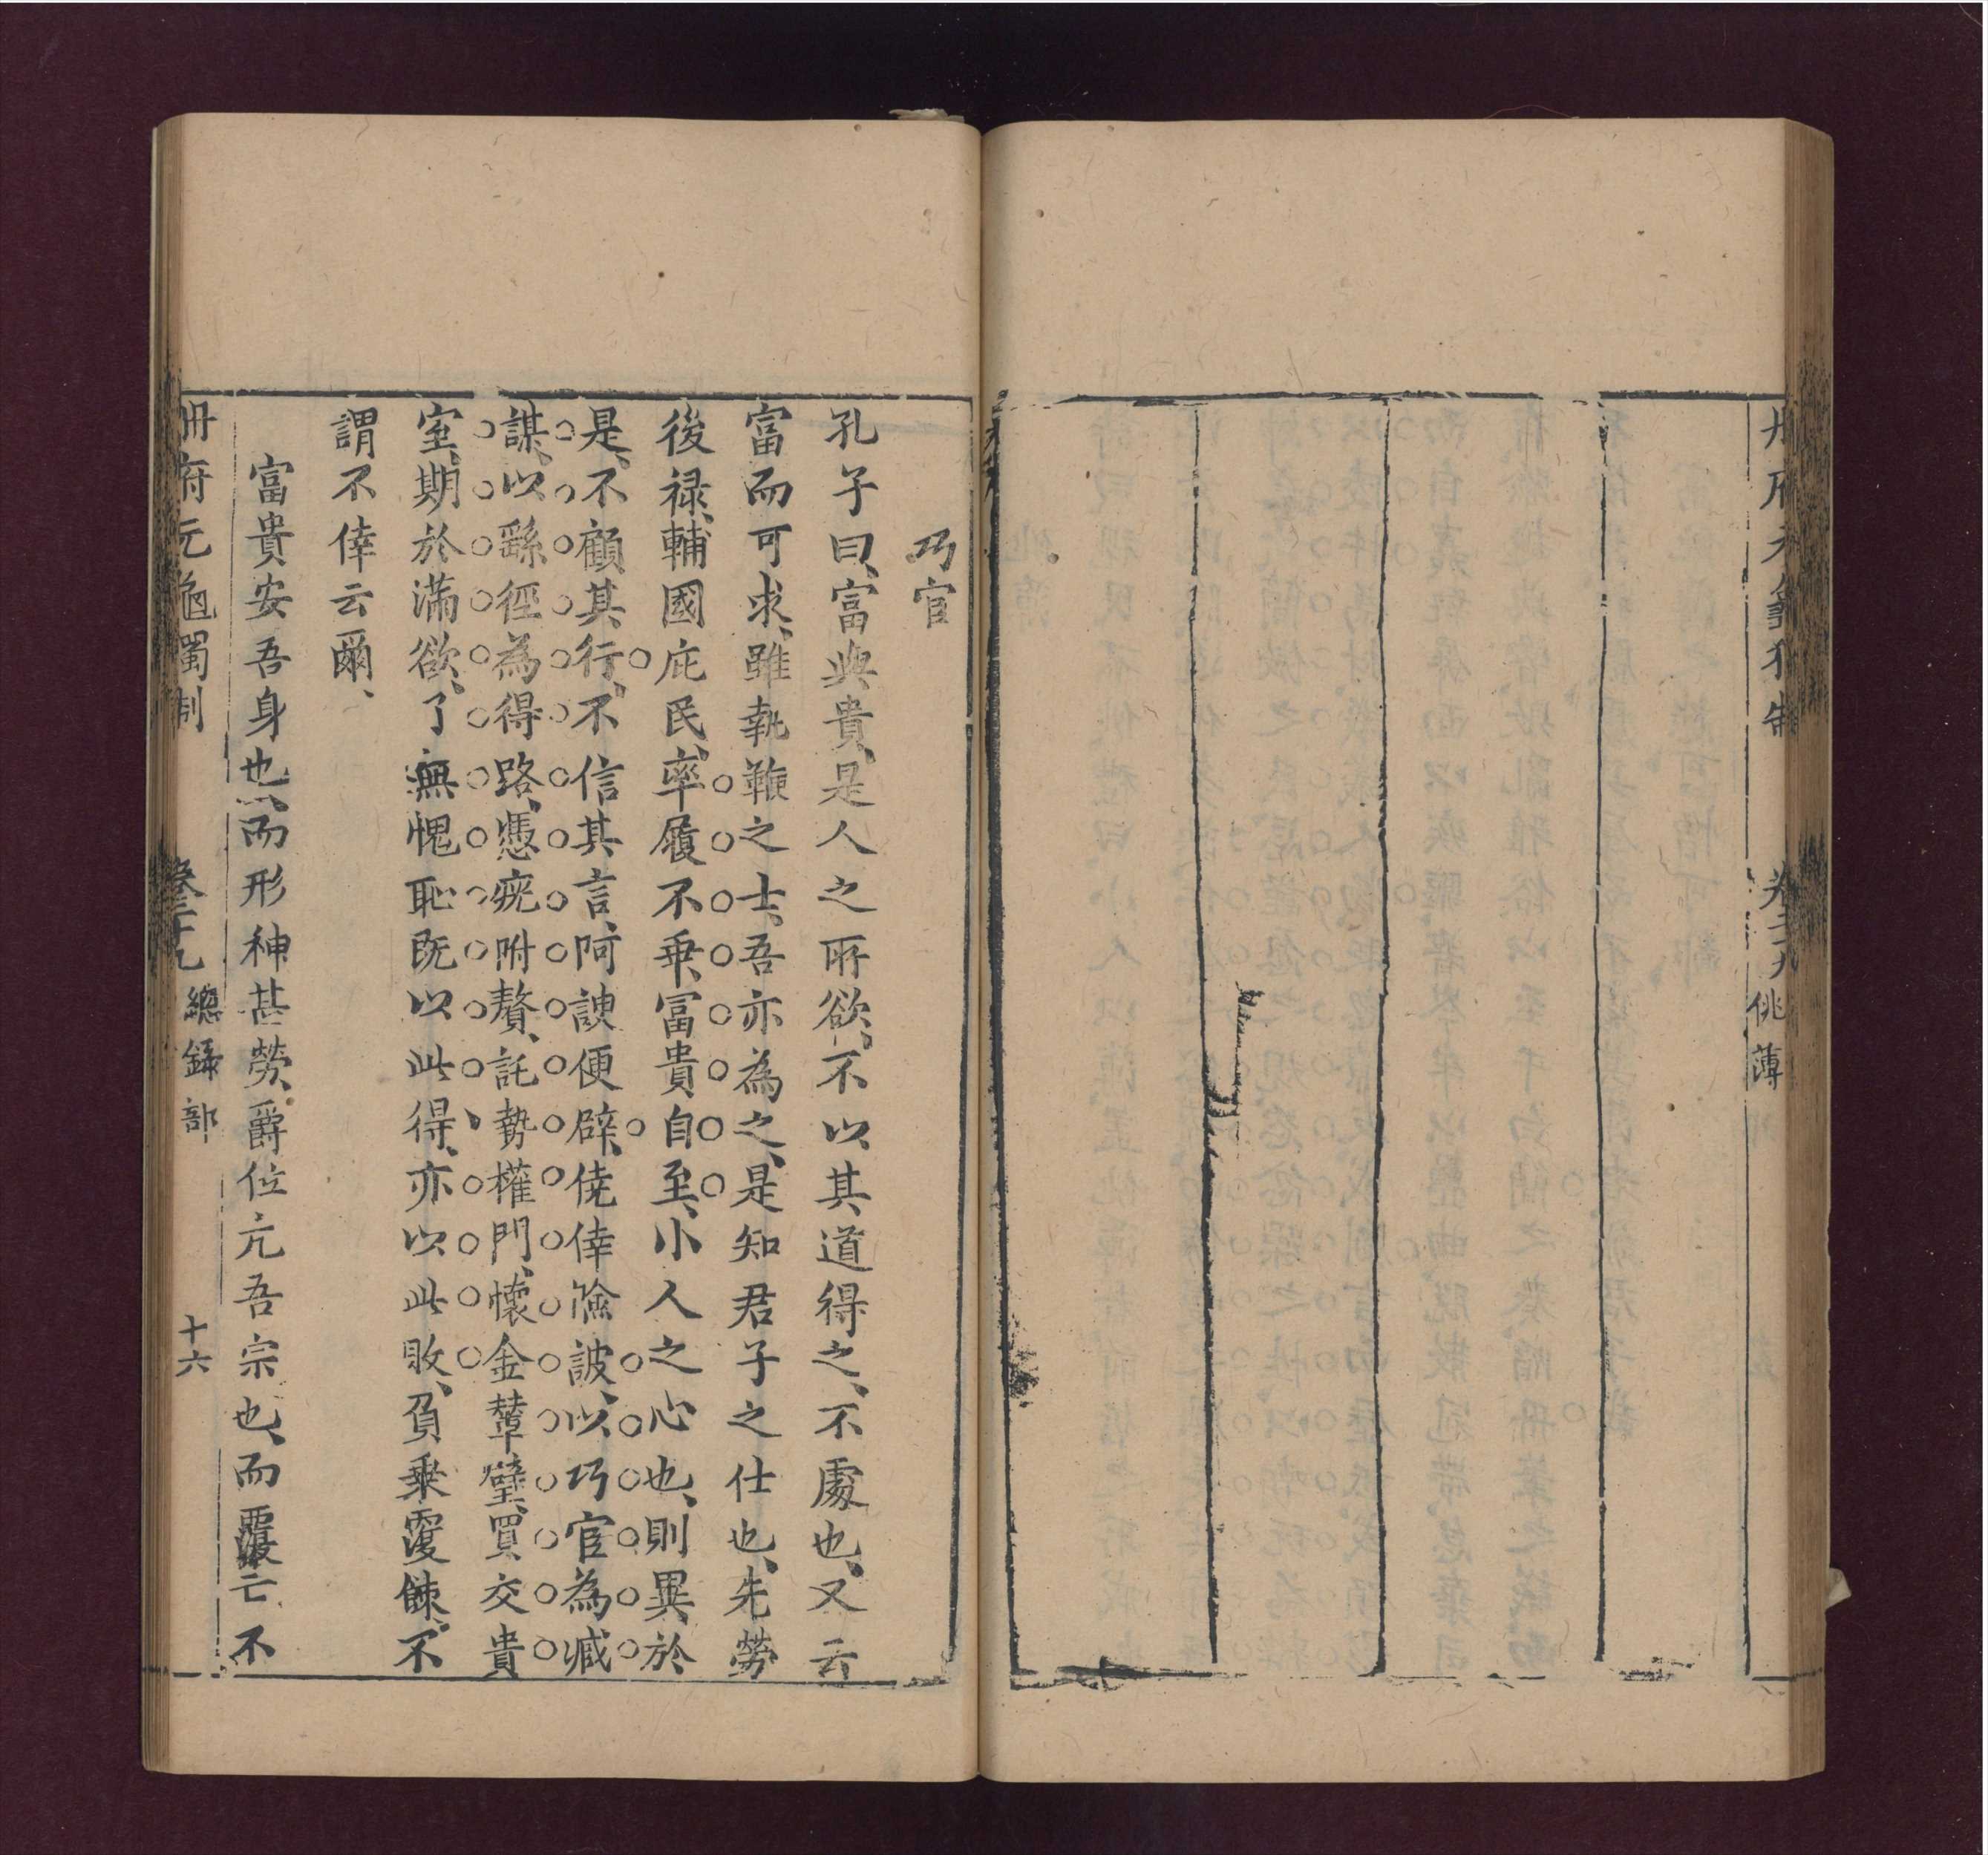 佻薄
巧官
孔子曰、富與貴、是人之所欲、不以其道得之、不處也、又云
富而可求、雖執鞭之士、吾亦為之、是知君子之仕也、先勞
後祿、輔國庇民、率履不乖、富貴自至、小人之心也、則異於
是、不顧其行、不信其言、阿諛便辟、僥倖憸詖、以巧官為臧
謀、以繇徑為得路、憑疣附贅、託勢權門、懷金輦璧、買交貴
室、期於滿欲、了無愧恥既以此得、亦以此敗、負乗覆餗、不
謂不倖云爾、
富貴安吾身也、而形神甚勞、爵位亢吾宗也、而覆亡不
冊府元龜獨制
卷二十九
總錄部
十六